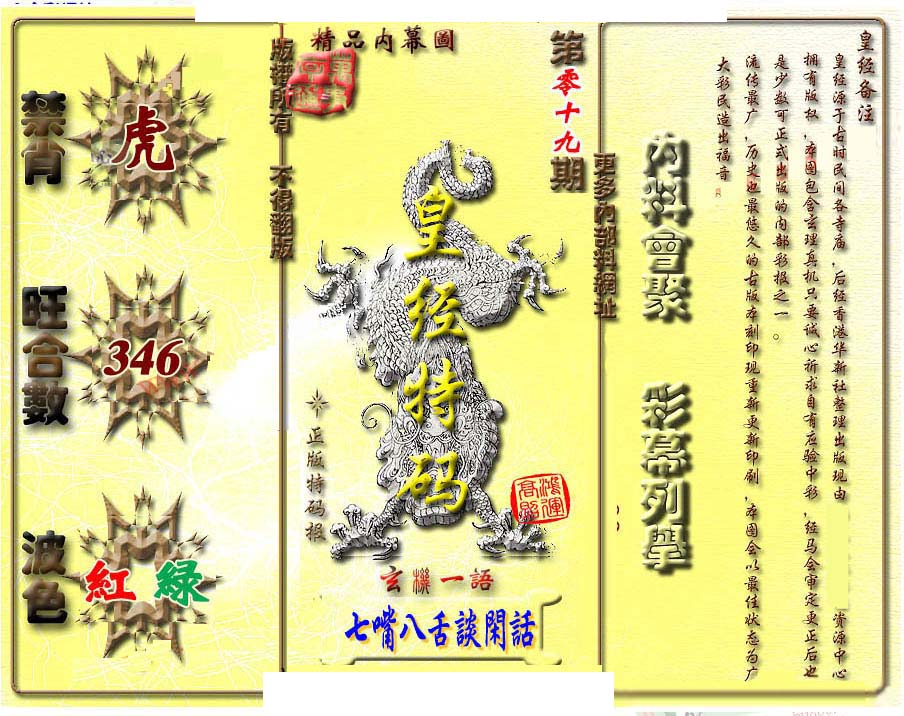 禁肖
虎
旺合數
346
波色
紅 綠
版權所有 不得翻版
精品内幕圖
第零十九期
皇经特码
正版特码报
鴻運高照
玄機一語
七嘴八舌談閑話
更多內部料網址
內料會聚
彩幕列舉
皇经备注
皇经源于古时民间各寺庙,后经香港华新社整理出版现由 资源中心
拥有版权,本图包含玄理真机只要诚心祈求自有应验中彩,经马会审定更正后也
是少数可正式出版的内部彩报之一。
流传最广,历史也最悠久的古版本刻印现重新更新印刷,本图会以最佳状态为广
大彩民造出福音